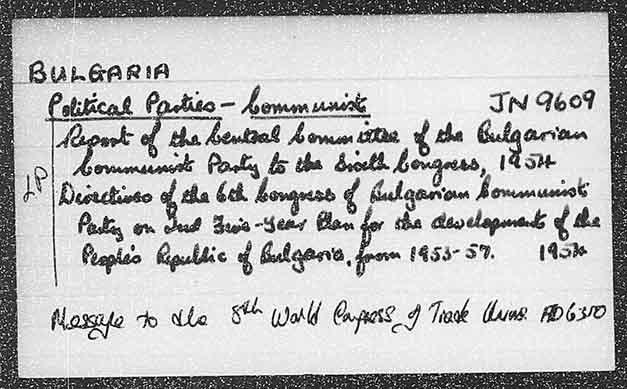 BULGARIA
Political Parties - Communist JN 9609
Report of the Central Committee of the Bulgarian
Communist Party to the Sixth Congress, 1954
Directives of the 6th Congress of Bulgarian Communist
Party on 2nd Five-Year Plan for the development of the
People's Republic of Bulgaria, from 1953-57. 1954
Message to the 8th World Congress of Trade Unions HD6350